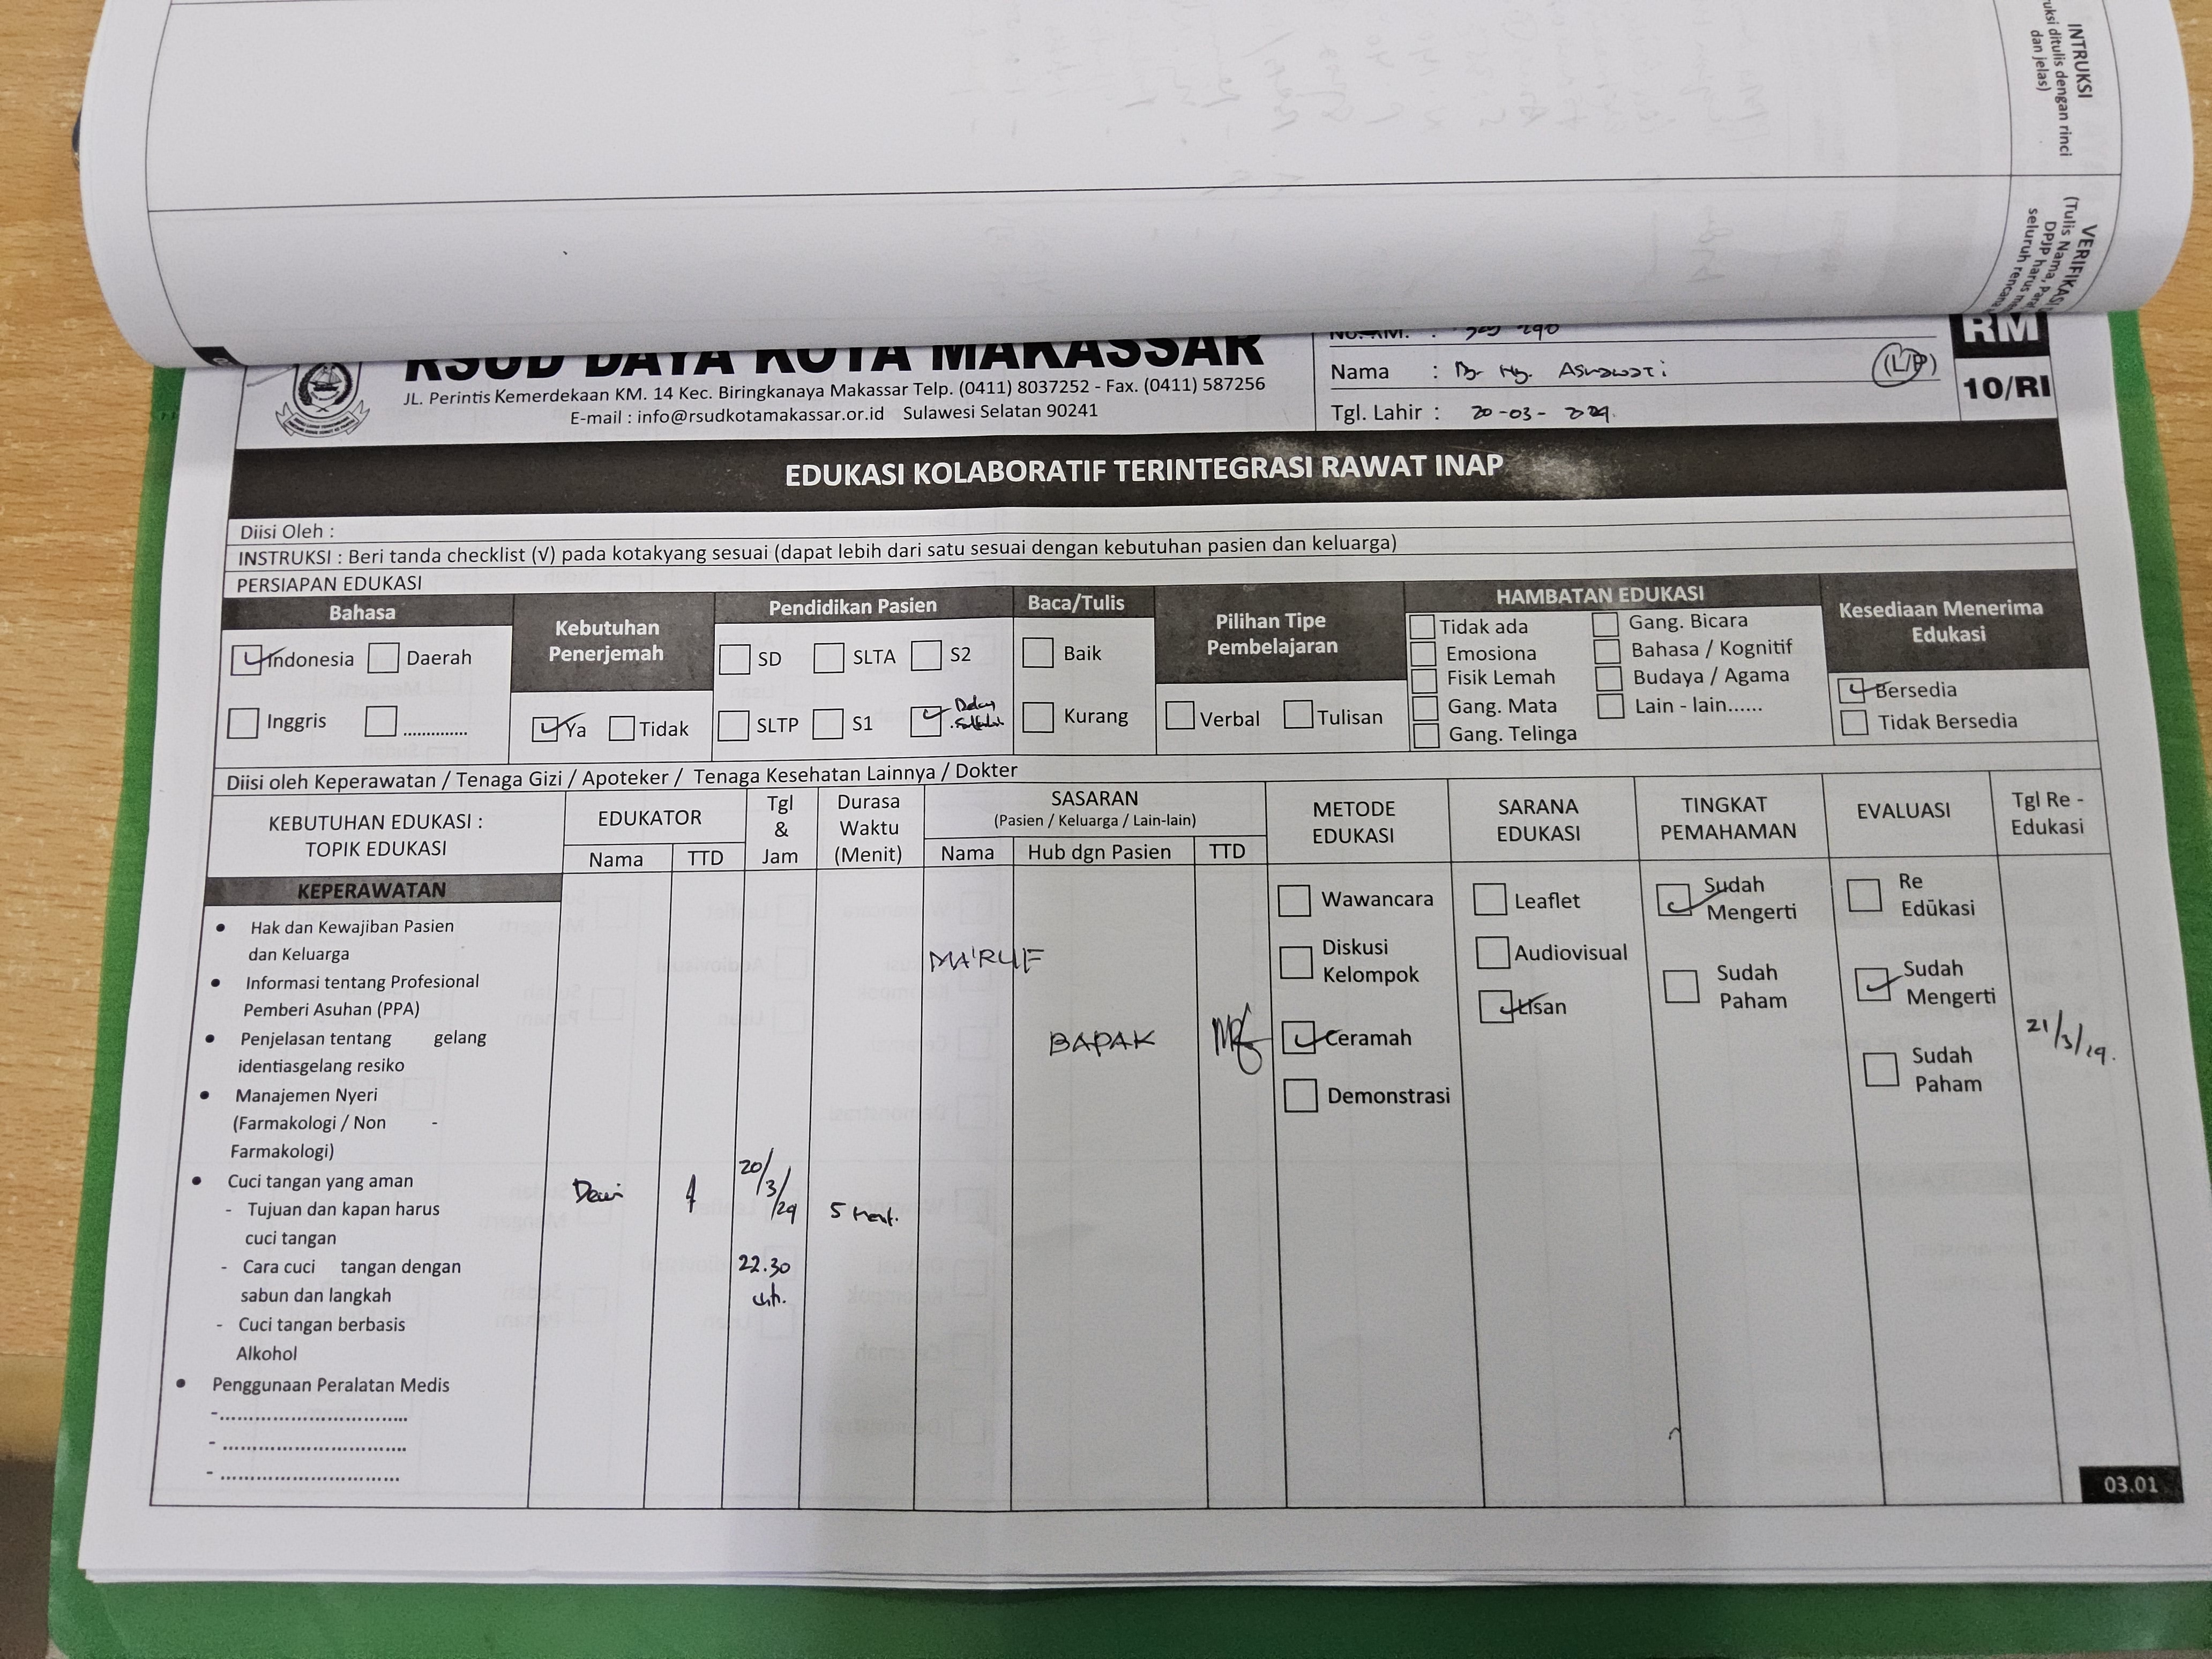 RSUD DAYA KOTA MAKASSAR
JL. Perintis Kemerdekaan KM. 14 Kec. Biringkanaya Makassar Telp. (0411) 8037252 - Fax. (0411) 587256
E-mail : info@rsudkotamakassar.or.id Sulawesi Selatan 90241
Nama : By Ny. Asnawati (L/P)
Tgl. Lahir : 20-03-
RM
10/RI
EDUKASI KOLABORATIF TERINTEGRASI RAWAT INAP
Diisi Oleh :
INSTRUKSI : Beri tanda checklist (V) pada kotakyang sesuai (dapat lebih dari satu sesuai dengan kebutuhan pasien dan keluarga)
PERSIAPAN EDUKASI
Bahasa
Indonesia Daerah
Inggris .............
Kebutuhan
Penerjemah
Ya Tidak
Pendidikan Pasien
SD SLTA S2
SLTP S1
Baca/Tulis
Baik
Kurang
Pilihan Tipe
Pembelajaran
Verbal Tulisan
HAMBATAN EDUKASI
Tidak ada Gang. Bicara
Emosiona Bahasa / Kognitif
Fisik Lemah Budaya / Agama
Gang. Mata Lain - lain......
Gang. Telinga
Kesediaan Menerima
Edukasi
Bersedia
Tidak Bersedia
Diisi oleh Keperawatan / Tenaga Gizi / Apoteker / Tenaga Kesehatan Lainnya / Dokter
KEBUTUHAN EDUKASI :
TOPIK EDUKASI
EDUKATOR
Nama TTD
Tgl
&
Jam
Durasa
Waktu
(Menit)
SASARAN
(Pasien / Keluarga / Lain-lain)
Nama Hub dgn Pasien TTD
METODE
EDUKASI
SARANA
EDUKASI
TINGKAT
PEMAHAMAN
EVALUASI
Tgl Re -
Edukasi
KEPERAWATAN
• Hak dan Kewajiban Pasien
dan Keluarga
• Informasi tentang Profesional
Pemberi Asuhan (PPA)
• Penjelasan tentang gelang
identiasgelang resiko
• Manajemen Nyeri
(Farmakologi / Non -
Farmakologi)
• Cuci tangan yang aman
- Tujuan dan kapan harus
cuci tangan
- Cara cuci tangan dengan
sabun dan langkah
- Cuci tangan berbasis
Alkohol
• Penggunaan Peralatan Medis
- ..............................
- ..............................
- ..............................
Dewi
20/
3/
22.30
5 menit.
MA'RUF
BAPAK
Wawancara
Diskusi
Kelompok
Ceramah
Demonstrasi
Leaflet
Audiovisual
Lisan
Sudah
Mengerti
Sudah
Paham
Re
Edukasi
Sudah
Mengerti
Sudah
Paham
21/3/
03.01
INTRUKSI
dan jelas)
VERIFIKASI
(Tulis Nama,
DPJP harus
seluruh rencana